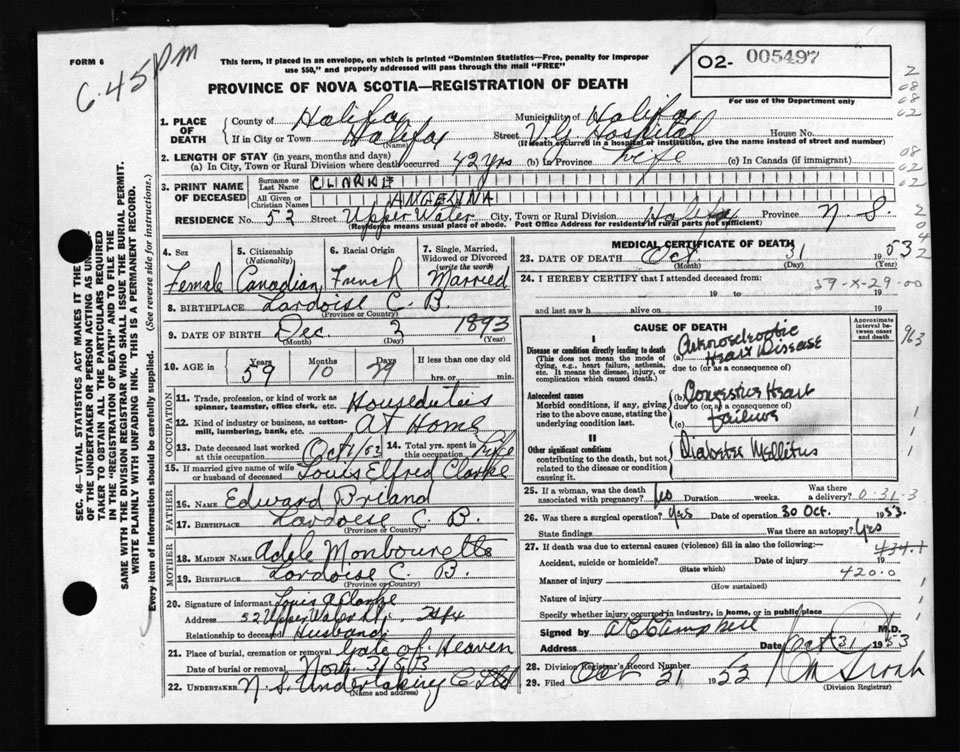 FORM 6
6.45 PM
This form, if placed in an envelope, on which is printed "Dominion Statistics—Free, penalty for improper
use $50," and properly addressed will pass through the mail "FREE"
PROVINCE OF NOVA SCOTIA—REGISTRATION OF DEATH
O2- 005497
For use of the Department only
1. PLACE OF DEATH
County of Halifax Municipality of Halifax
If in City or Town Halifax Street V.G. Hospital House No.
(Name) (If death occurred in a hospital or institution, give the name instead of street and number)
2. LENGTH OF STAY (in years, months and days)
(a) In City, Town or Rural Division where death occurred 42 yrs (b) In Province Life (c) In Canada (if immigrant)
3. PRINT NAME OF DECEASED
Surname or Last Name CLARKE
All Given or Christian Names ANGELINA
RESIDENCE No. 52 Street Upper Water City, Town or Rural Division Halifax Province N.S.
(Residence means usual place of abode. Post Office Address for residents in rural parts not sufficient)
SEC. 46—VITAL STATISTICS ACT MAKES IT THE
OF THE UNDERTAKER OR PERSON ACTING AS UN
TAKER TO OBTAIN ALL THE PARTICULARS REQUIRED
IN THE "REGISTRATION OF DEATH" AND TO FILE THE
SAME WITH THE DIVISION REGISTRAR WHO SHALL ISSUE THE BURIAL PERMIT.
WRITE PLAINLY WITH UNFADING INK. THIS IS A PERMANENT RECORD.
Every item of Information should be carefully supplied. (See reverse side for instructions.)
4. Sex 5. Citizenship (Nationality) 6. Racial Origin 7. Single, Married, Widowed or Divorced (write the word)
Female Canadian French Married
8. BIRTHPLACE Lardoise C. B.
(Province or Country)
9. DATE OF BIRTH Dec 2 1893
(Month) (Day) (Year)
10. AGE in Years 59 Months 10 Days 29 If less than one day old hrs. or min.
OCCUPATION
11. Trade, profession, or kind of work as spinner, teamster, office clerk, etc. Houseduties
12. Kind of industry or business, as cotton-mill, lumbering, bank, etc. At Home
13. Date deceased last worked at this occupation Oct 1/53 14. Total yrs. spent in this occupation Life
15. If married give name of wife or husband of deceased Louis Elfred Clarke
FATHER
16. NAME Edward Briand
17. BIRTHPLACE Lardoise C. B.
(Province or Country)
MOTHER
18. MAIDEN NAME Adele Monbourette
19. BIRTHPLACE Lardoise C. B.
(Province or Country)
20. Signature of informant Louis A Clarke
Address 52 Upper Water St. Hfx
Relationship to deceased Husband
21. Place of burial, cremation or removal Gate of Heaven
Date of burial or removal Nov. 3/53
22. UNDERTAKER N. S. Undertaking C Ltd
(Name and address)
MEDICAL CERTIFICATE OF DEATH
23. DATE OF DEATH Oct. 31 1953
(Month) (Day) (Year)
24. I HEREBY CERTIFY that I attended deceased from:
59-X-29-00
19 to 19
and last saw h alive on 19
CAUSE OF DEATH
Approximate interval between onset and death
I
Disease or condition directly leading to death
(This does not mean the mode of dying, e.g., heart failure, asthenia, etc. It means the disease, injury, or complication which caused death.)
(a) Heart Disease
due to (or as a consequence of)
Antecedent causes
Morbid conditions, if any, giving rise to the above cause, stating the underlying condition last.
(b) Congestive Heart
due to (or as a consequence of)
(c) Failure
II
Other significant conditions
contributing to the death, but not related to the disease or condition causing it.
Diabetes Mellitus
25. If a woman, was the death associated with pregnancy? Duration weeks. Was there a delivery? 0-31-3
26. Was there a surgical operation? Yes Date of operation 30 Oct. 1953.
State findings Was there an autopsy? Yes
27. If death was due to external causes (violence) fill in also the following:—
434.1
Accident, suicide or homicide? Date of injury 19
(State which)
420.0
Manner of injury
(How sustained)
Nature of injury
Specify whether injury occurred in industry, in home, or in public place
Signed by A E Campbell M.D.
Address Date Oct 31 1953
28. Division Registrar's Record Number
29. Filed Oct 31 1953
(Division Registrar)